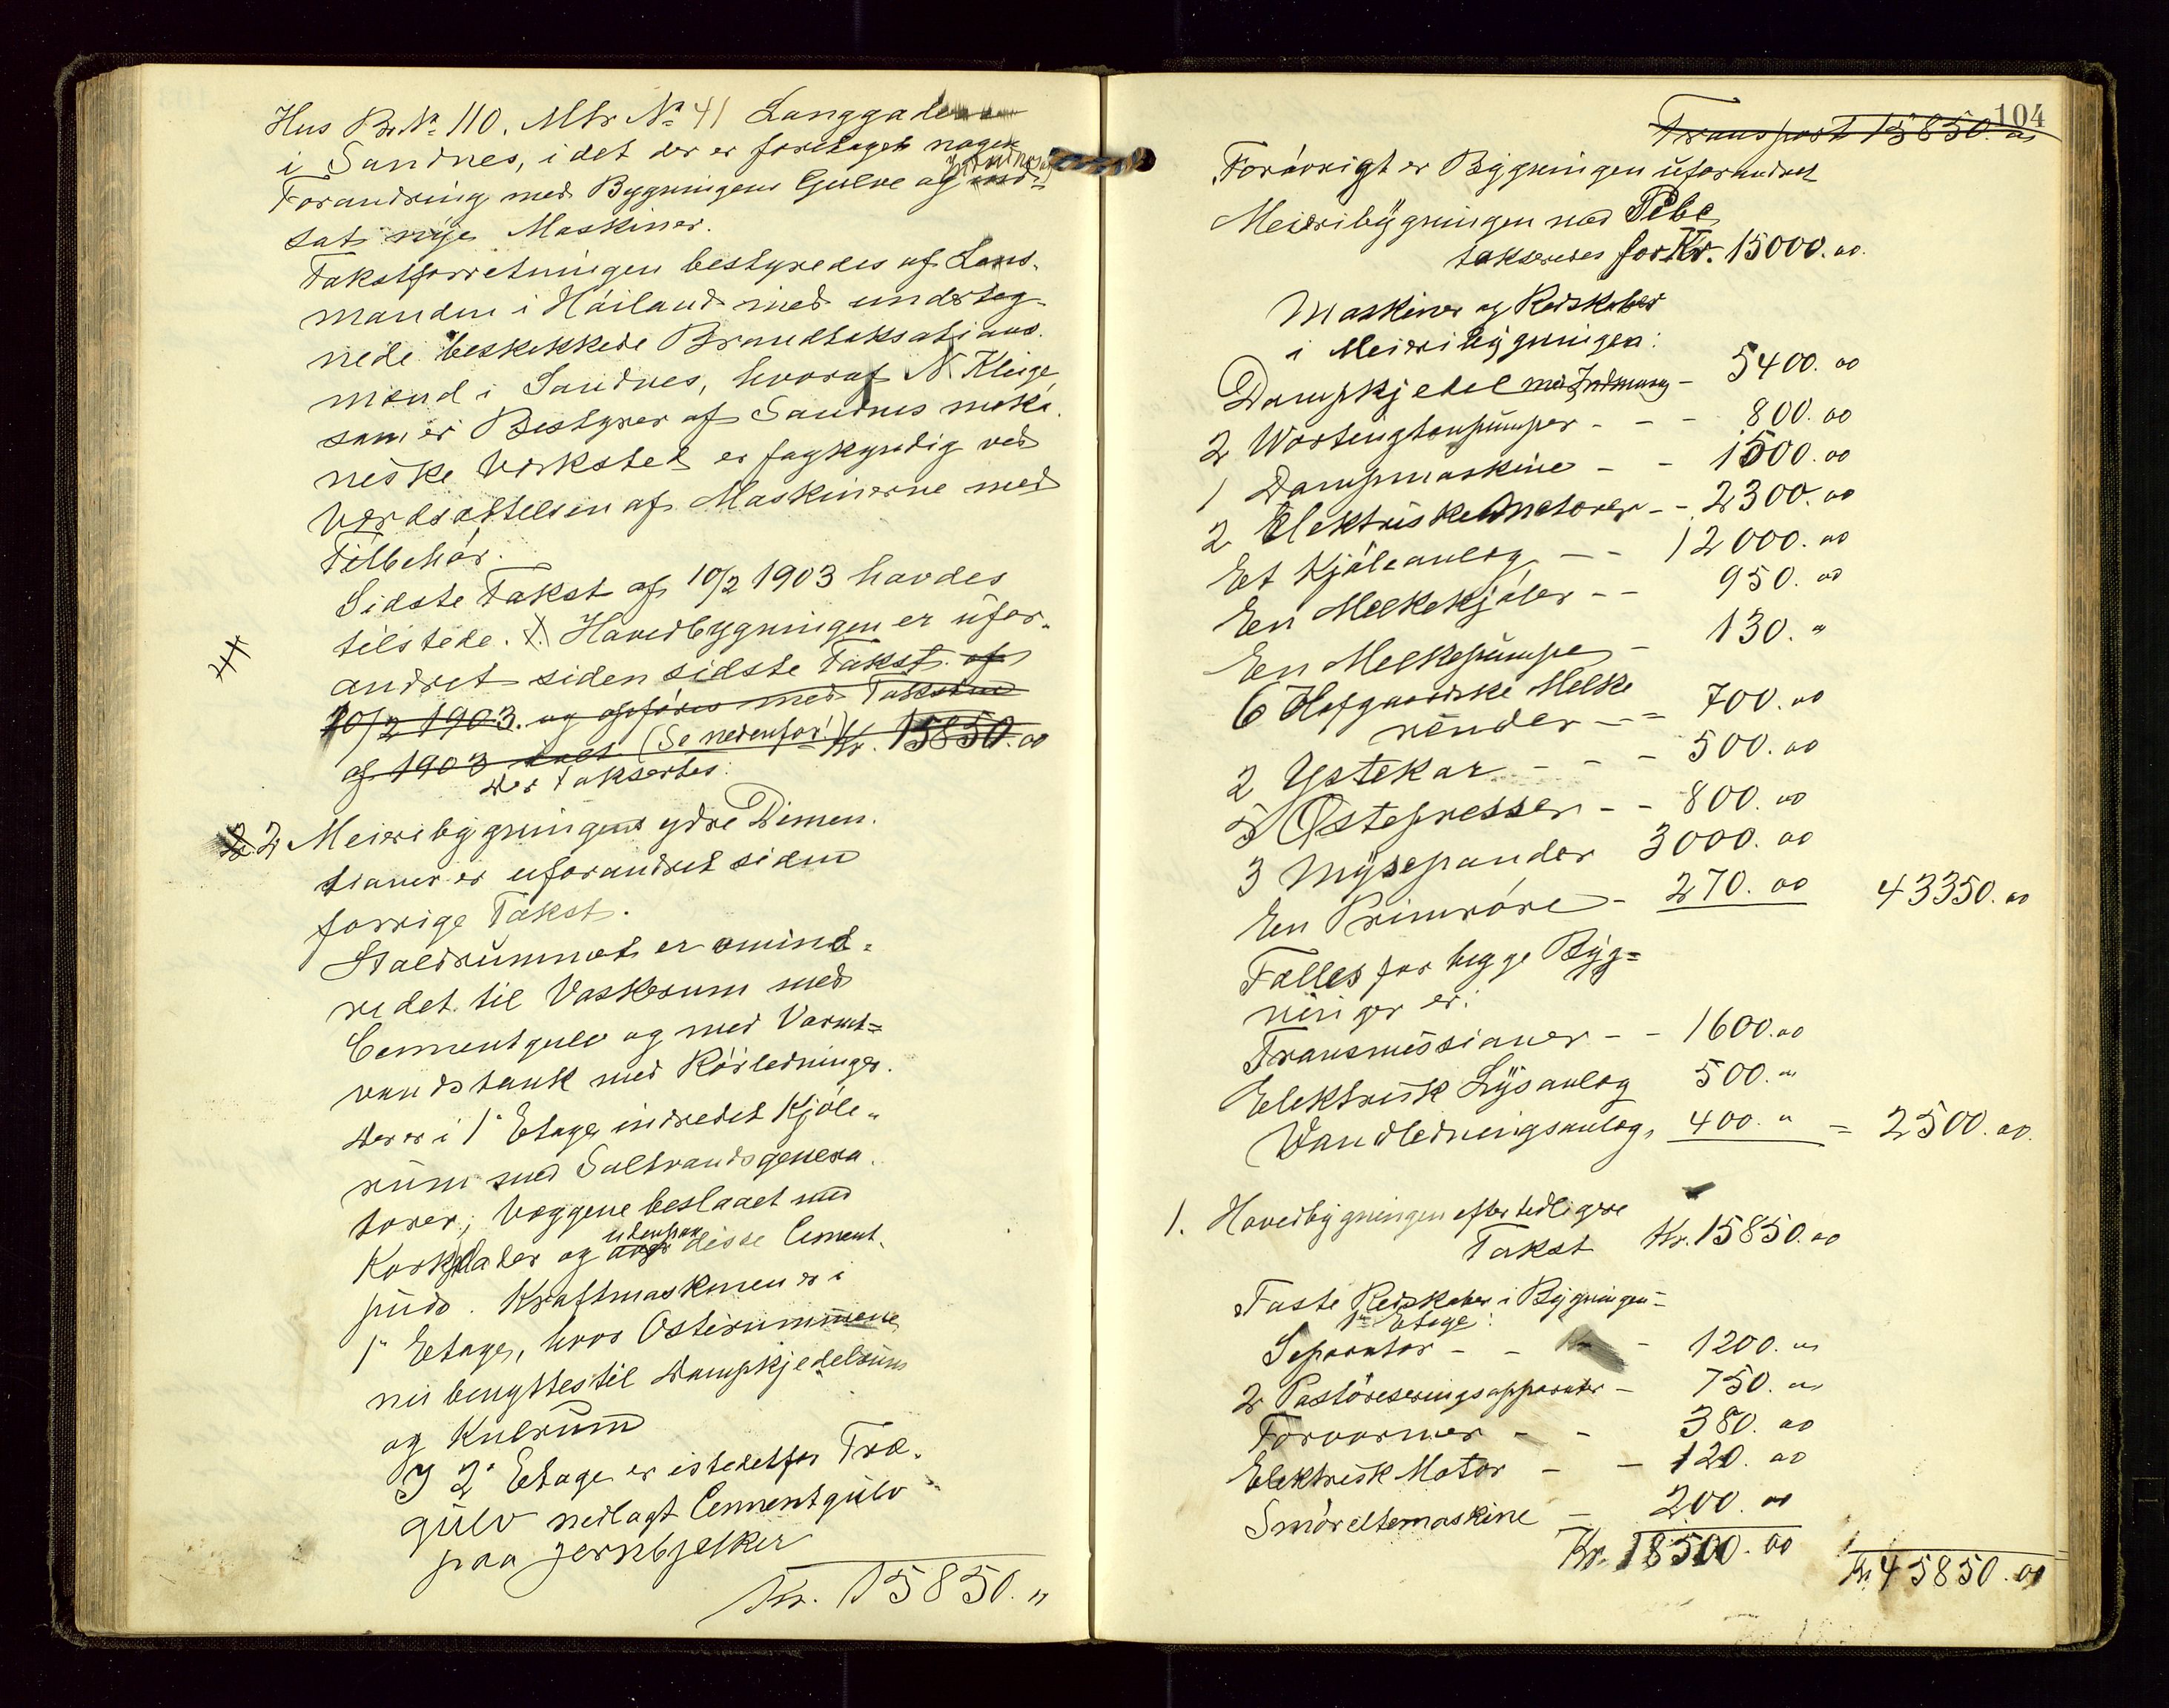 Hus Br. No 110. Mtr No 41 Langgaden
i Sandnes, idet der er foretaget nogen
Forandring med Bygningens Gulve og
sat nye Maskiner.
Takstforretningen bestyredes af Lens-
manden i Höiland med underteg-
nede beskikkede Brandtaksations-
mænd i Sandnes, hvoraf N. Kleige
som er Bestyrer af Sandnes meka-
niske Verksted er fagkyndig ved
Verdsættelsen af Maskinerne med
Tilbehör.
Sidste Takst af 10/2 1903 havdes
tilstede. 1. Hovedbygningen er ufor-
andret siden sidste Takst af
10/2 1903. og opföres med Taksten
af 1903 (Se nedenfor!) Kr. 15850.00
Der taksertes:
2 Meieribygningens ydre Dimen-
sioner er uforandret siden
forrige Takst.
Staldrummet er omind-
redet til Vaskerum med
Cementgulv og med Varmt-
vandstank med Rörledninger.
Der er i 1e Etage indredet Kjöle-
rum med Saltvandsgenera-
torer; Væggene beslaaet med
Korkplader og udenpaa disse Cement-
puds. Kraftmaskinen er i
1e Etage, hvor Osterummene
nu benyttes til Dampkjedelrum
og Kulrum
I 2e Etage er istedetfor Træ-
gulv nedlagt Cementgulv
paa Jernbjelker
Kr. 15850. "
104
Transport 15850. 00
Forövrigt er Bygningen uforandret
Meieribygningen med Pibe
takseredes for Kr. 15000. 00.
Maskiner og Redskaber
i Meieribygningen:
Dampkjedel med Indmuring - 5400. 00
2 Wortingtonpumper - - - 800. 00
1 Dampmaskine - - 1500. 00
2 Elektriske motorer - - 2300. 00
Et Kjöleanlæg - - 12000. 00
En Melkekjöler - - 950. 00
En Melkepumpe - 130. "
6 Hofgaardske Melke
render - - 700. 00
2 Ystekar - - - 500. 00
5 Ostepresser - - 800. 00
3 Mysepander 3000. 00
En Primröre - 270. 00 43350. 00
Fælles for begge Byg=
ninger er:
Transmissioner - - 1600. 00
Elektrisk Lysanlæg 500. "
Vandledningsanlæg, 400. " = 2500. 00.
1. Hovedbygningen efter tidligere
Takst Kr. 15850. 00
Faste Redskaber i Bygningen -
1ste Etage:
Separator - - - 1200. "
2 Pastöriseringsapparater - 750. "
Forvarmer - - 380. 00
Elektrisk Motor - - 120. 00
Smöreltemaskine - 200. 00
Kr. 18500. 00 Kr. 45850. 00